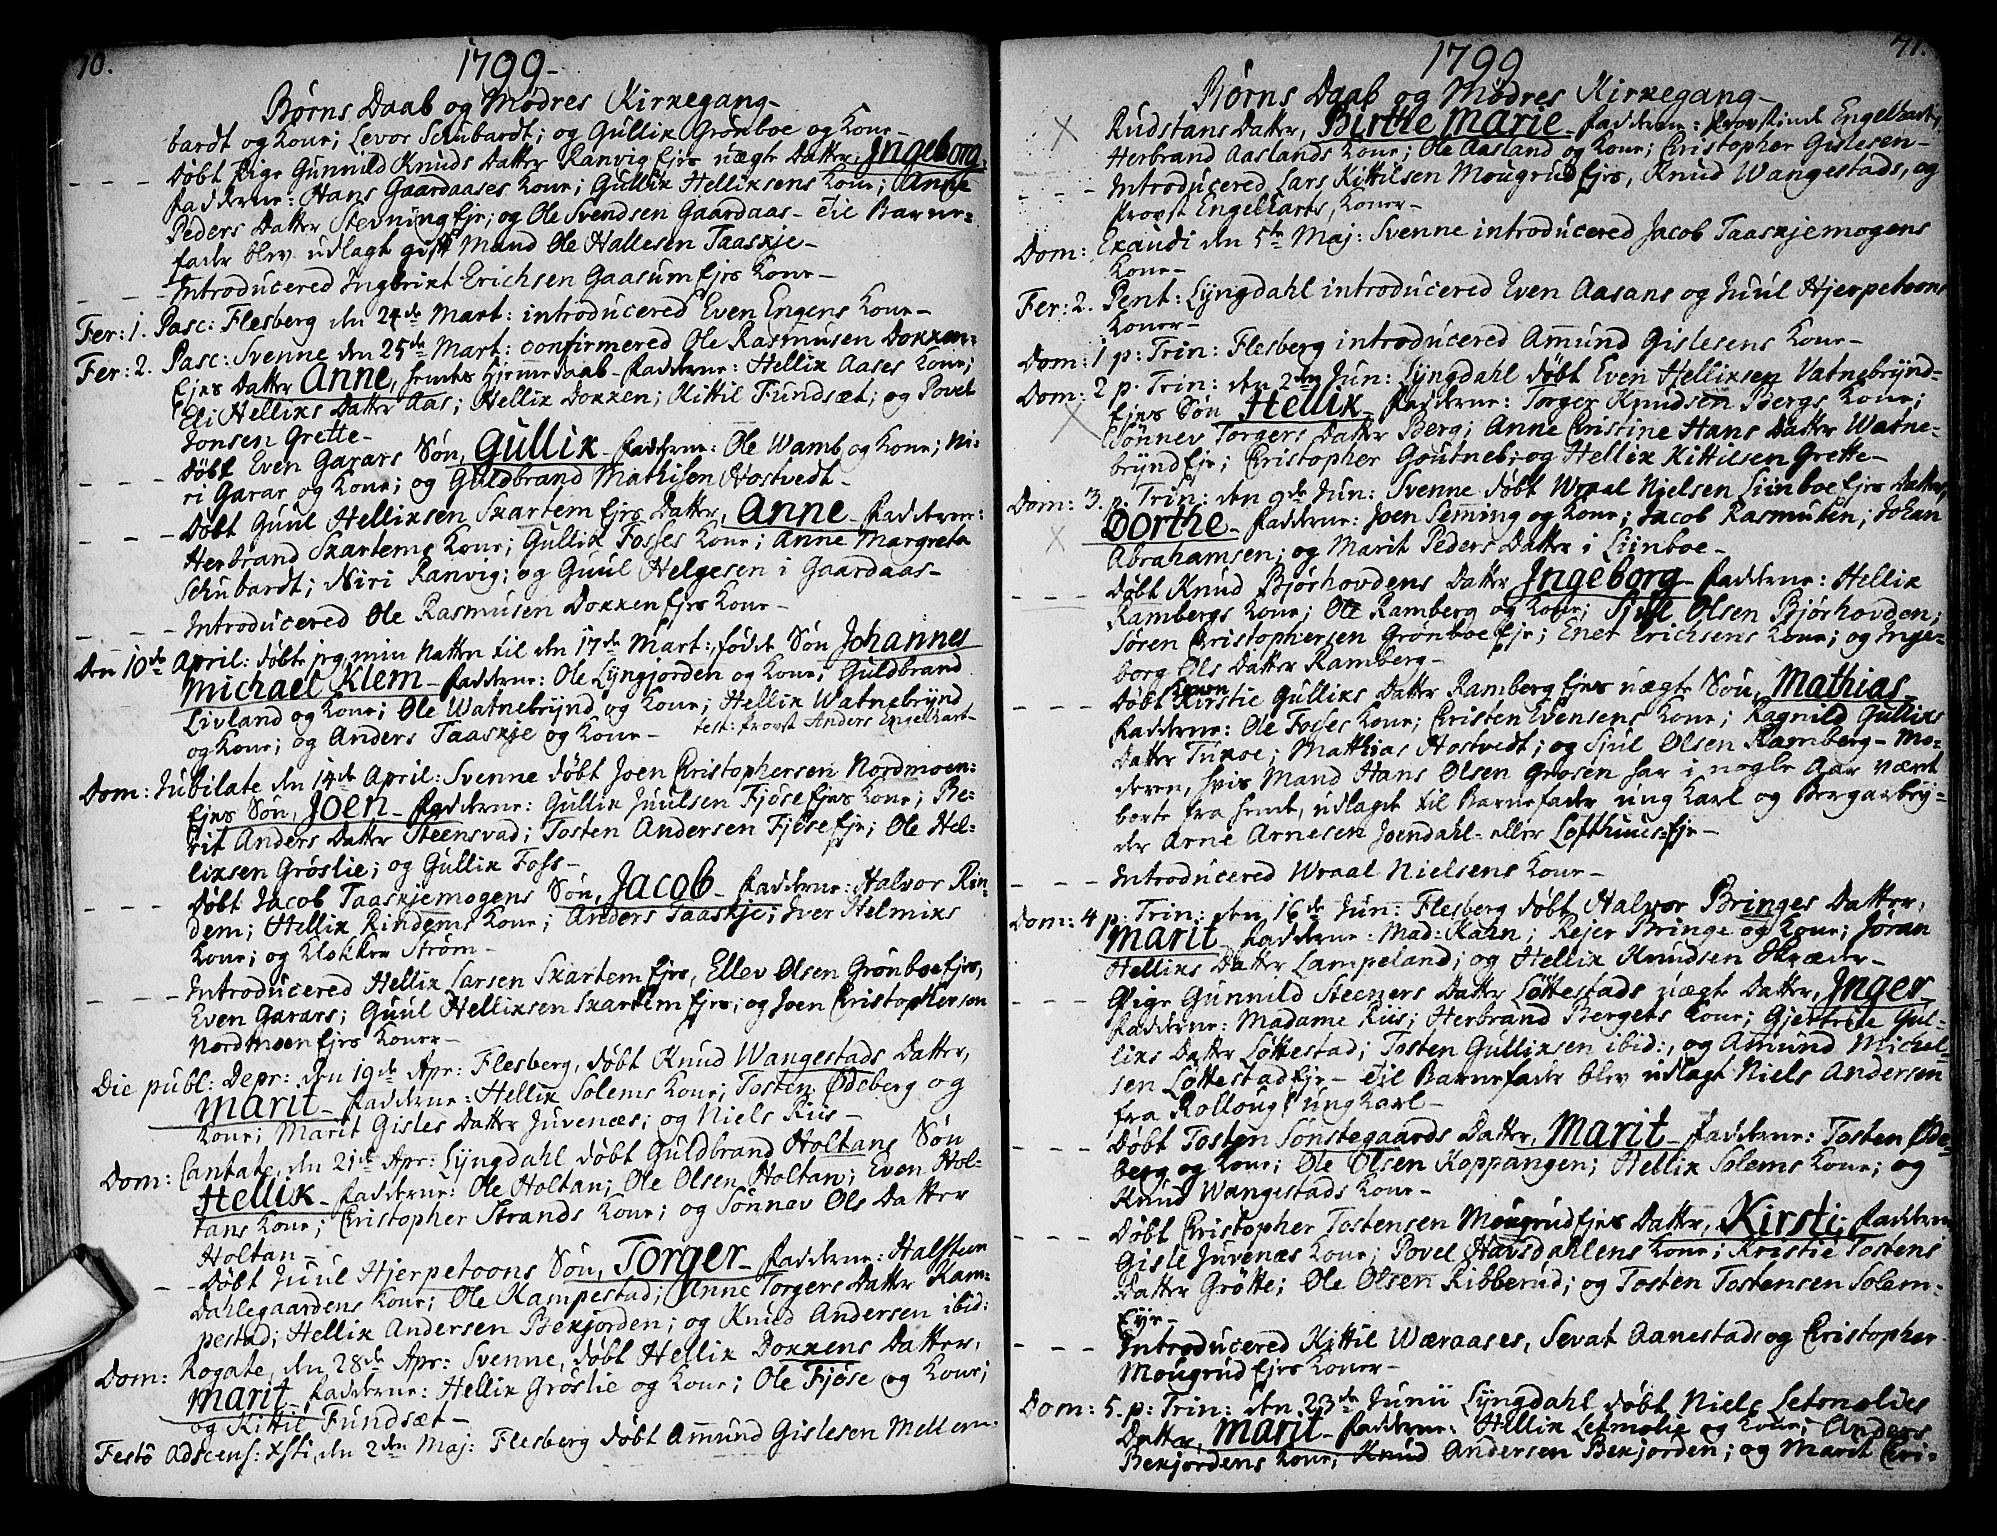 70.
1799
Børns Daab og Mødres Kirkegang
bardt og Kone; Levor Schubardt; og Gullik Grønboe og Kone
Døbt Pige Gunnild Knuds Datter Ranvig Ejes uægte Datter Ingeborg
Fadderne: Hans Gaardaases Kone; Gullik Helliksens Kone; Anne
Peders Datter Stevning Eje; og Ole Svendsen Gaardaas Til Barne-
fader blev udlagt gift Mand Ole Hallesen Taaskje
Introducered Ingbrikt Erichsen Gaasum Ejes Kone
Fer: 1. Pasc: Flesberg den 24de Mart: introducered Even Engens Kone
Fer: 2. Pasc: Svenne den 25de Mart: confirmered Ole Rasmusen Dokken-
Ejes Datter Anne, hendes Hjemedaab Fadderne: Hellik Aases Kone;
Eli Helliks Datter Aas; Hellik Dokken; Kittil Fundsæt; og Povel
Jonsen Grette
Døbt Even Garars Søn, Gullik Fadderne: Ole Wamb og Kone; Ni-
ri Garar og Kone; og Guldbrand Mathisen Hostvedt
Døbt Guul Helliksen Skartem Ejes Datter, Anne Fadderne:
Herbrand Skartems Kone; Gullik Fosses Kone; Anne Margreta
Schubardt; Niri Ranvig; og Guul Helgesen i Gaardaas
Introducered Ole Rasmusen Dokken Ejes Kone
Den 10de April: døbte jeg min Natten til den 17de Mart: fødte Søn Johannes
Michael Klem Fadderne: Ole Lyngjorden og Kone; Guldbrand
Livland og Kone; Ole Watnebrynd og Kone; Hellik Watnebrynd
og Kone; og Anders Taaskje og Kone test: Provst Anders Engelhart
Dom: Jubilate den 14de April: Svenne døbt Joen Christophersen Nordmoen-
Ejes Søn, Joen Fadderne: Gullik Juulsen Fjøse Ejes Kone; Be-
rit Anders Datter Steensvad; Tosten Andersen Fjøse Eje; Ole Hel-
liksen Grøslie; og Gullik Foss
Døbt Jacob Taaskjemogens Søn, Jacob Fadderne: Halvor Rin-
dem; Hellik Rindems Kone; Anders Taaskje; Iver Helmiks
Kone; og Klokker Strøm
Introducered Hellik Larsen Skartem Ejes, Ellev Olsen Grønboe Ejes,
Even Garars; Guul Helliksen Skartem Ejes; og Joen Christophersen
Nordmoen Ejes Koner
Die publ: Depr: den 19de Apr: Flesberg, døbt Knud Wangestads Datter,
Marit Fadderne: Hellik Solems Kone; Tosten Ødeberg og
Kone; Marit Gisles Datter Juvenæs; og Niels Ruis
Dom: Cantate, den 21de Apr: Lyngdahl døbt Guldbrand Holtans Søn
Hellik Fadderne: Ole Holtan; Ole Olsen Holtan; Even Hol-
tans Kone; Christopher Strands Kone; og Sønnev Ols Datter
Holtan
Døbt Juul Hjerpetoons Søn, Torger Fadderne: Halsteen
Dahlegaardens Kone; Ole Kampestad; Anne Torgers Datter Kam-
pestad; Hellik Andersen Bekjorden; og Knud Andersen ibid:
Dom: Rogate, den 28de Apr: Svenne, døbt Hellik Dokkens Datter,
Marit Fadderne: Hellik Grøslie og Kone; Ole Fjøse og Kone;
og Kittil Fundsæt
Festo Adscens: Xsti, den 2den Maj: Flesberg døbt Amund Gislesen Mellem-
71.
1799
Børns Daab og Mødres Kirkegang
Rudstans Datter, Birthe Marie Fadderne: Provstinde Engelhart;
Herbrand Aaslands Kone; Ole Aasland og Kone; Christopher Gislesen
Introducered Lars Kittilsen Mougrud Ejes, Knud Wangestads, og
Provst Engelharts, Koner
Dom: Exaudi den 5te Maj: Svenne introducered Jacob Taaskjemogens
Kone
Fer: 2. Pent: Lyngdahl introducered Even Aasans og Juul Hjerpetoons
Koner
Dom: 1 p: Trin: Flesberg introducered Amund Gislesens Kone
Dom: 2 p. Trin: den 2den Jun: Lyngdahl døbt Even Helliksen Vatnebrynd-
Ejes Søn Hellik Fadderne: Torger Knudsen Bergs Kone;
Sønnev Torgers Datter Berg; Anne Christine Hans Datter Watne-
brynd Eje; Christopher Goutneb; og Hellik Kittilsen Grette
Dom: 3. p. Trin: den 9de Jun: Svenne døbt Wraal Nielsen Liinboe Ejes Datter,
Dorthe Fadderne: Joen Semming og Kone; Jacob Rasmusen; Johan
Abrahamsen; og Marit Peders Datter i Liinboe
Døbt Knud Bjørhovdens Datter Ingeborg Fadderne: Hellik
Rambergs Kone; Ole Ramberg og Kone; Sjul Olsen Bjørhovden;
Søren Christophersen Grønboe Eje; Ener Erichsens Kone; og Inge-
borg Ols Datter Ramberg
Døbt Konen Kirstie Gulliks Datter Ramberg Ejes uægte Søn, Mathias
Fadderne: Ole Fosses Kone; Christen Evensens Kone; Ragnild Gulliks
Datter Tukoe; Matthias Hostvedt; og Sjul Olsen Ramberg Mo-
deren, hvis Mand Hans Olsen Grosen har i nogle Aar været
borte fra hende, udlagde til Barnefader ung Karl og Bergarbey-
der Arne Arnesen Joendahl eller Lofthuus Eje
Introducered Wraal Nielsens Kone
Dom: 4 p: Trin: den 16de Jun: Flesberg døbt Halvor Bringes Datter,
Marit Fadderne: Mad: Kahn; Rejer Bringe og Kone; Jøran
Helliks Datter Lampeland; og Hellik Knudsen Skræder
Pige Gunnild Steeners Datter Løttestads uægte Datter, Inger
Fadderne: Madame Ruis; Herbrand Bergets Kone; Gjertrue Gul-
liks Datter Løttestad; Tosten Gulliksen ibid:, og Amund Michel-
sen Løttestad Eje Til Barnefader blev udlagt Niels Andersen
fra Rolloug ung Karl
Døbt Tosten Sønstegaards Datter, Marit Fadderne: Tosten Øde-
berg og Kone; Ole Olsen Koppangen; Hellik Solems Kone; og
Knud Wangestads Kone
Døbt Christopher Tostensen Mougrud Ejes Datter, Kirsti; Fadderne
Gisle Juvenæs Kone; Povel Havsdahlens Kone; Kristie Tostens
Datter Grøtte; Ole Olsen Ribberud; og Tosten Tostensen Solem-
Eje
Introducered Kittil Wæraases, Sevat Aanestads og Christopher
Mougrud Ejes Koner
Dom: 5. p: Trin: den 23de Junii Lyngdahl døbt Niels Letmolies
Datter, Marit Fadderne: Hellik Letmolie og Kone; Anders
Bekjordens Kone; Knud Andersen Bekjorden; og Marit Chri-